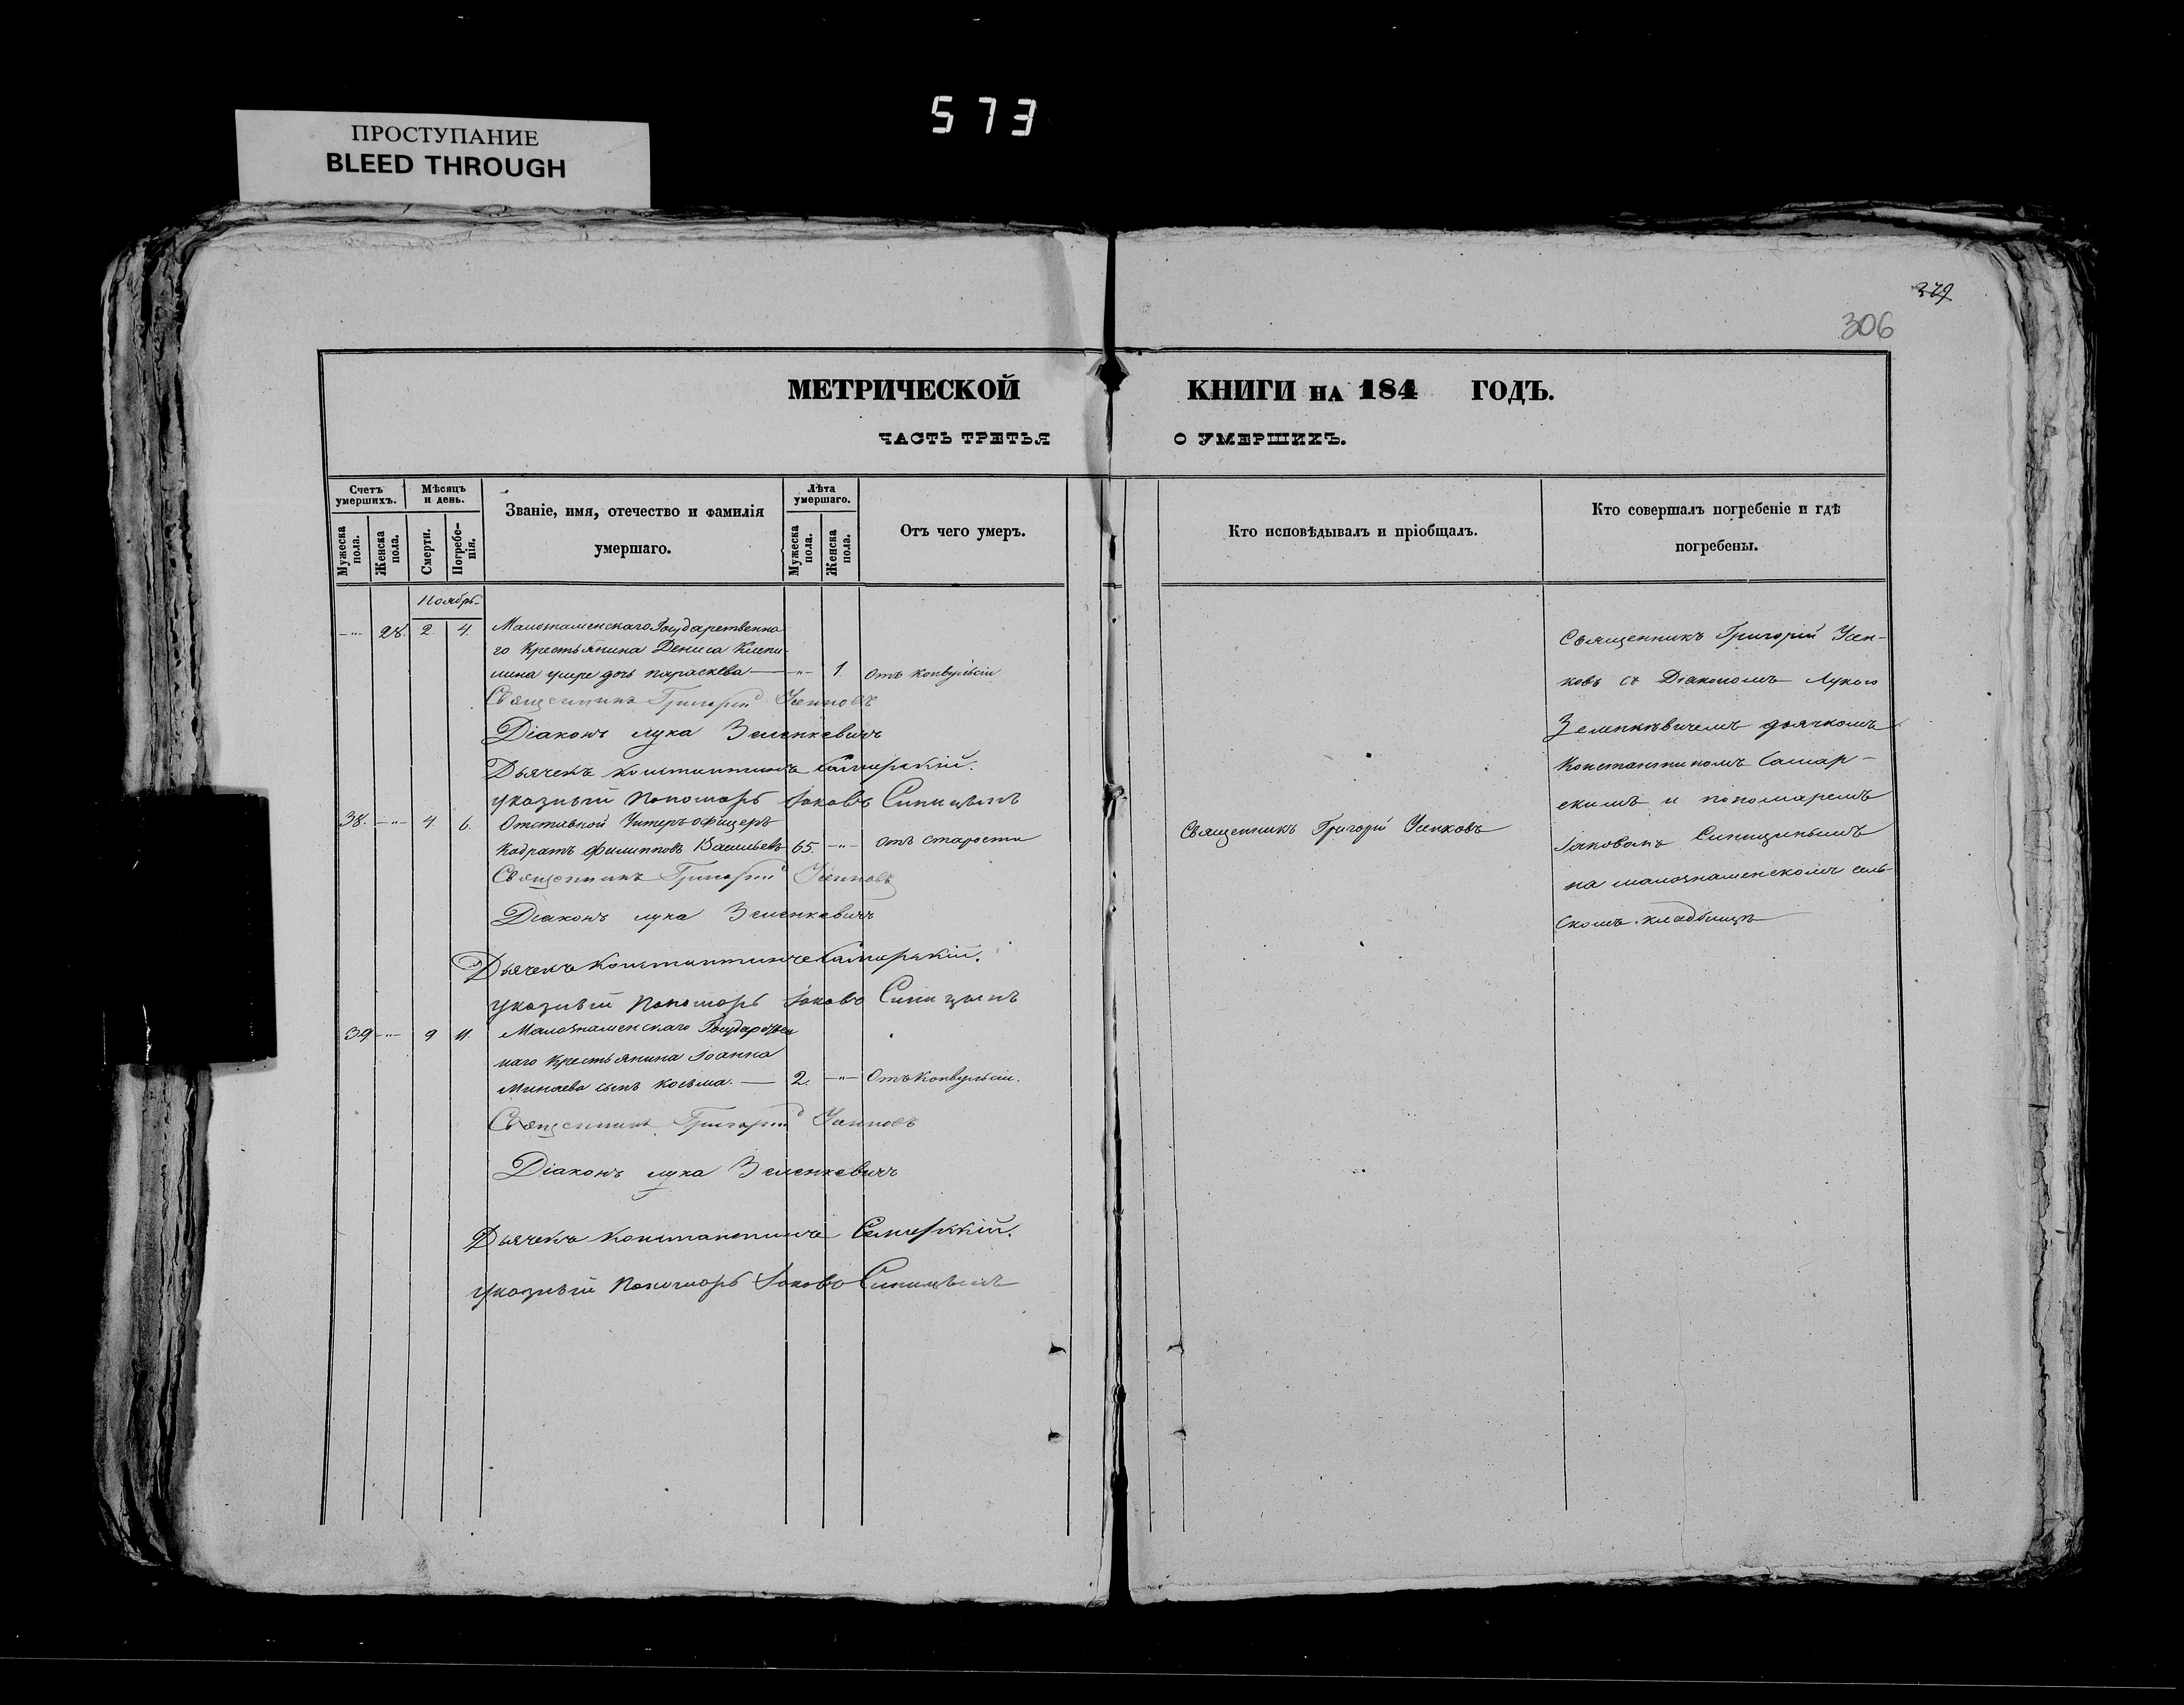 573
ПРОСТУПАНИЕ
BLEED THROUGH
379
306
МЕТРИЧЕСКОЙ КНИГИ НА 184 ГОДЪ.
ЧАСТЬ ТРЕТЬЯ О УМЕРШИХЪ.
Счетъ умершихъ.
Мужеска пола.
Женска пола.
Мѣсяцъ и день.
Смерти.
Погребе-нія.
Званіе, имя, отечество и фамилія
умершаго.
Лѣта умершаго.
Мужеска пола.
Женска пола.
Отъ чего умеръ.
Кто исповѣдывалъ и пріобщалъ.
Кто совершалъ погребеніе и гдѣ
погребены.
Ноябрь
-"- 28. 2. 4. Малознаменскаго Государственна
го Крестьянина Дениса
умре дочь параскева -"- 1. Отъ конвульсіи
Священникъ Григорій Усенковъ
Діаконъ лука Зеленкевичъ
Дьячекъ константинъ Самарскій.
указный пономарь Іаковъ Синицынъ
38. -"- 4 6. Отставной Унтеръ-офицеръ
Кодратъ филипповъ Васильевъ 65. -"- отъ старости
Священникъ Григорій Усенковъ
Діаконъ лука Зеленкевичъ
Дьячекъ Константинъ Самарскій.
указный пономарь Іаковъ Синицынъ
39 -"- 9 11. Малознаменскаго Государствен
наго крестьянина Іоанна
Минаева сынъ косьма. 2. -"- Отъ Конвульсіи.
Священникъ Григорій Усенковъ
Діаконъ лука Зеленкевичъ
Дьячекъ константинъ Самарскій.
указный пономарь Іаковъ Синицынъ
Священникъ Григорій Усенковъ
Священникъ Григорій Усен-
ковъ съ Діакономъ Лукою
Зеленкѣвичемъ дьячкомъ
Константиномъ Самар-
скимъ и пономаремъ
Іаковомъ Синицынымъ
на малознаменскомъ сель
скомъ кладбищѣ